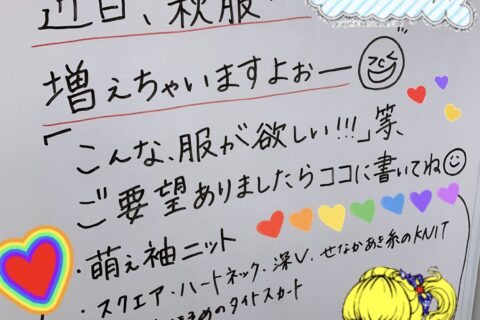 近日、秋服
増えちゃいますよぉー
「こんな、服が欲しい!!!」等、
ご要望ありましたらココに書いてね
・萌え袖ニット
・スクエア・ハートネック・深V・せなかあき系のKNIT
のタイトスカート